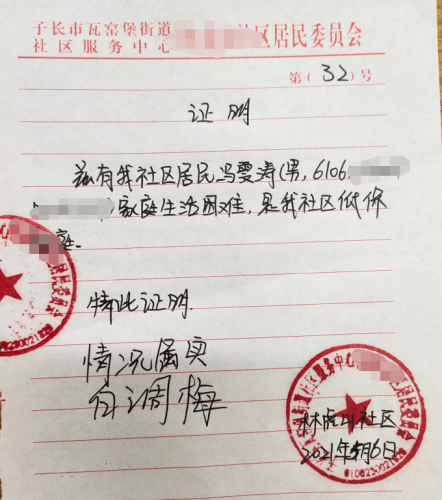 子长市瓦窑堡街道
社区服务中心 社区居民委员会
第(32)号
证明
兹有我社区居民冯雯涛(男,6106
)家庭生活困难,是我社区低保
庭。
特此证明
情况属实
白润梅
林虎山社区
2021年5月6日